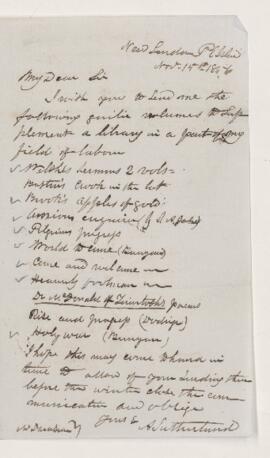 New London P E Isld
Nov. 15th 18
My Dear Sir
I wish you to send me the
following guilie volumes to supp
plement a library in a part of my
field of labour
Welshs sermons 2 vols
Boston's Crook in the lot
Brooks apples of gold
anxious enquirer (J. A. James)
Pilgrims progress
World to come (Bunyan)
Come and welcome
Heavenly footman
Dr McDonald of Ferintosh's poems
Rise and progress (Doddridge)
Holy war (Bunyan)
I hope this may come to hand in
time to allow of your sending them
before the winter close the com
munication and oblige
yours &c
A Sutherland